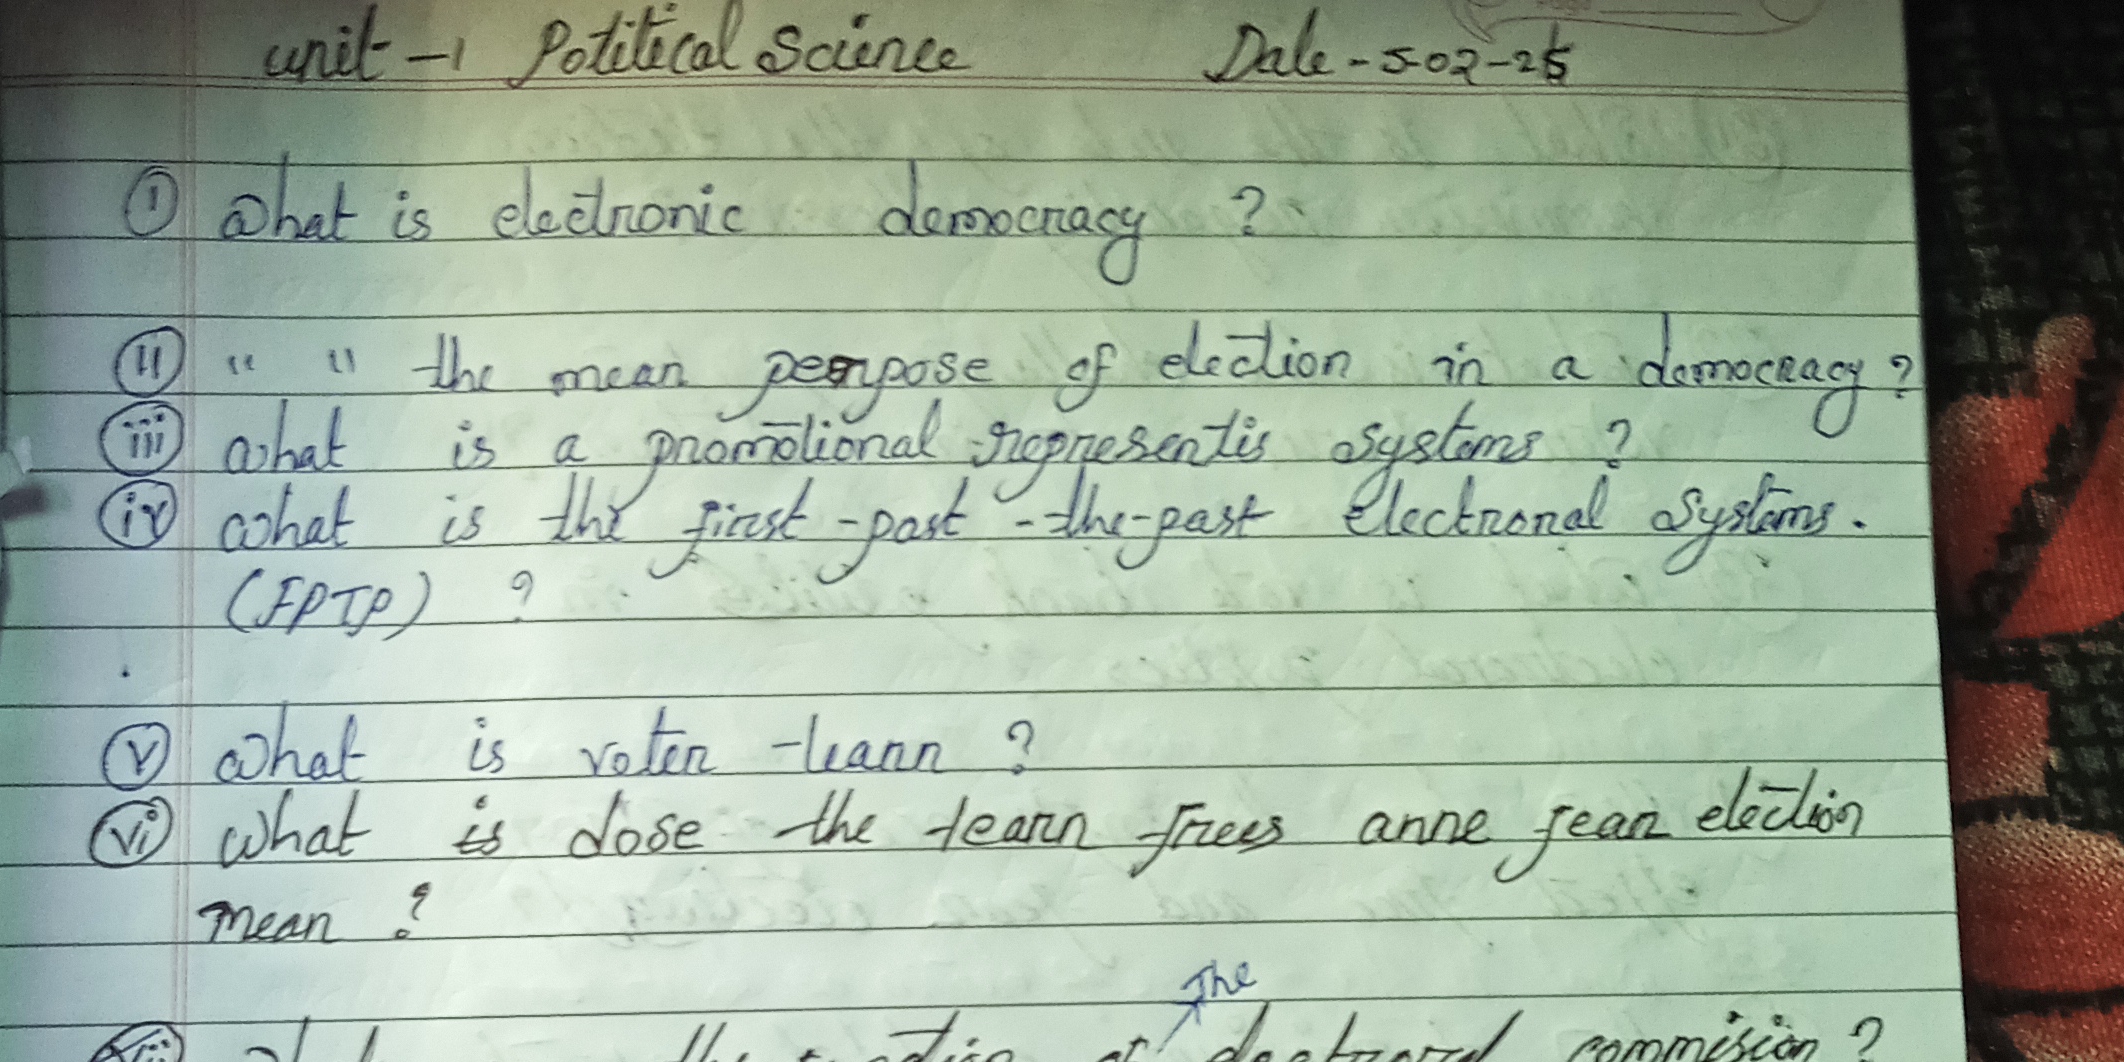 unit -1 Potitical Science Date - 5-02-25
① What is electronic democracy ?
ⅱ " " the mean perpose of election in a democracy ?
ⅲ What is a promotional representis systems ?
ⅳ What is the first-past-the-past electronal systems.
(FPTP) ?
ⅴ What is voter -tearn ?
ⅵ What is dose the tearn frees anne fear election
mean ?
The
the of commision ?